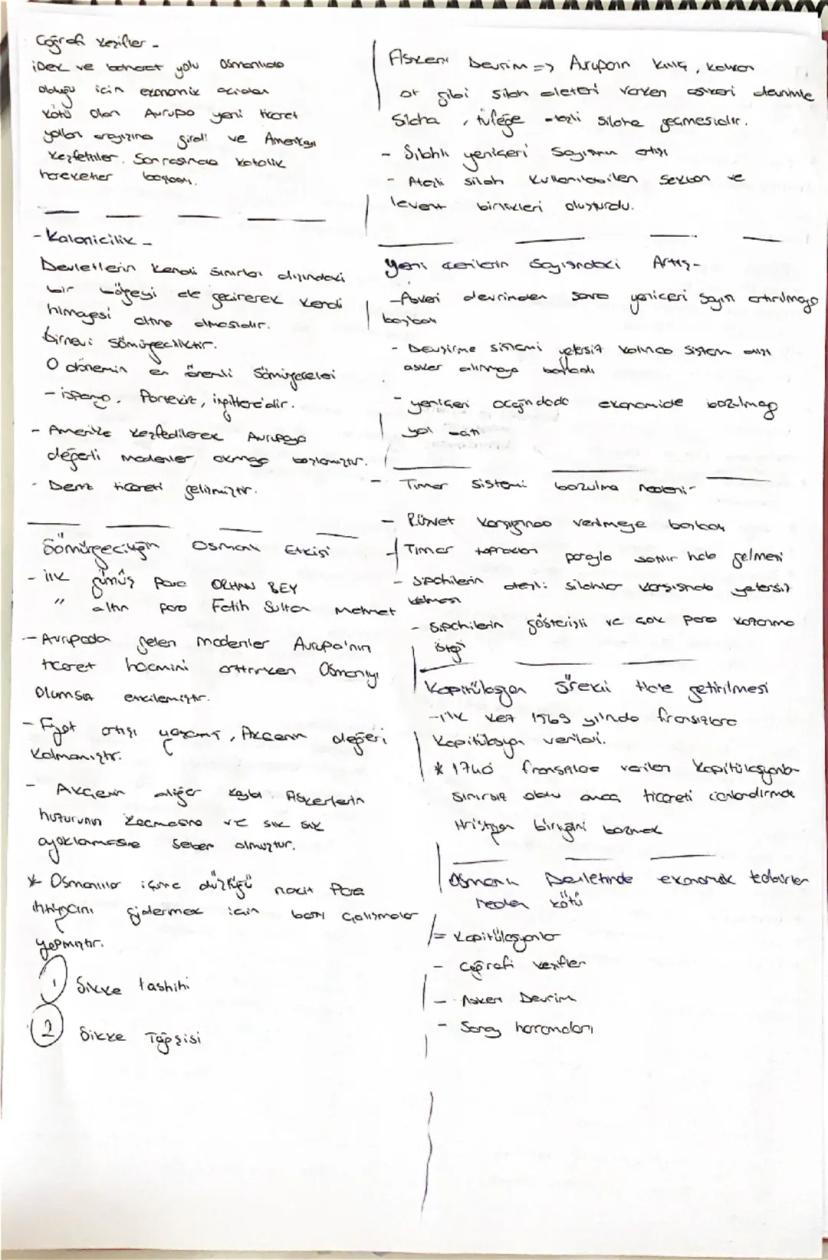 Coğrafi Keşifler -
İpek ve baharat yolu Osmanlıda
olduğu için ekonomik açıdan
kötü olan Avrupa yeni ticaret
yolları arayışına girdi ve Amerikayı
keşfettiler. Sonrasında katolik
hareketler başladı.
- Kolonicilik -
Devletlerin kendi sınırları dışındaki
bir bölgeyi ele geçirerek kendi
himayesi altına almasıdır.
Birnevi sömürgeciliktir.
O dönemin en önemli sömürgecileri
- İspanya, Portekiz, İngiltere'dir.
- Amerika keşfedilerek Avrupaya
değerli madenler akmaya başlamıştır.
- Deniz ticareti gelişmiştir.
Sömürgeciliğin Osmanlı Etkisi
- ilk gümüş para ORHAN BEY
" altın para Fatih Sultan Mehmet
- Avrupada gelen madenler Avrupa'nın
ticaret hacmini arttırırken Osmanlıyı
olumsuz etkilemiştir.
- Fiyat artışı yaşanmış, Akçenin değeri
kalmamıştır.
- Akçenin değer kaybı Askerlerin
huzurunun kaçmasına ve sık sık
ayaklanmasına sebep olmuştur.
* Osmanlılar içine düştüğü nakit para
ihtiyacını gidermek için bazı çalışmalar
yapmıştır.
1 Sikke tashihi
2 Sikke Tağşişi
Askeri Devrim => Avrupanın kılıç, kalkan
at gibi silah aletleri varken askeri devrimle
silaha, tüfeğe ateşli silaha geçmesidir.
- Silahlı yeniçeri sayısının artışı
- Ateşli silah kullanılabilen sekban ve
levent birlikleri oluşturdu.
Yeni çerilerin Sayısındaki Artış-
- Askeri devrimden sonra yeniçeri sayısı artırılmaya
başladı
- Devşirme sistemi yetersiz kalınca sistem dışı
asker alınmaya başladı
- yeniçeri ocağındada ekonomide bozulmaya
yol açtı
- Tımar sistemi bozulma nedeni-
- Rüşvet karşığında verilmeye başladı
- Tımar toprakları parayla satılır hale gelmesi
- sipahilerin ateşli silahlar karşısında yetersiz
kalması
- sipahilerin gösterişli ve çok para kazanma
isteği
Kapitülasyon Sürekli Hale getirilmesi
- ilk kez 1569 yılında fransızlara
kapitülasyon verildi.
* 1740 fransızlara verilen kapitülasyonlar
sınırsız oldu amaç ticareti canlandırmak
Hristiyan birliğini bozmak
Osmanlı Devletinde ekonomik tedbirler
neden kötü
- Kapitülasyonlar
- Coğrafi keşifler
- Askeri Devrim
- Saray harcamaları